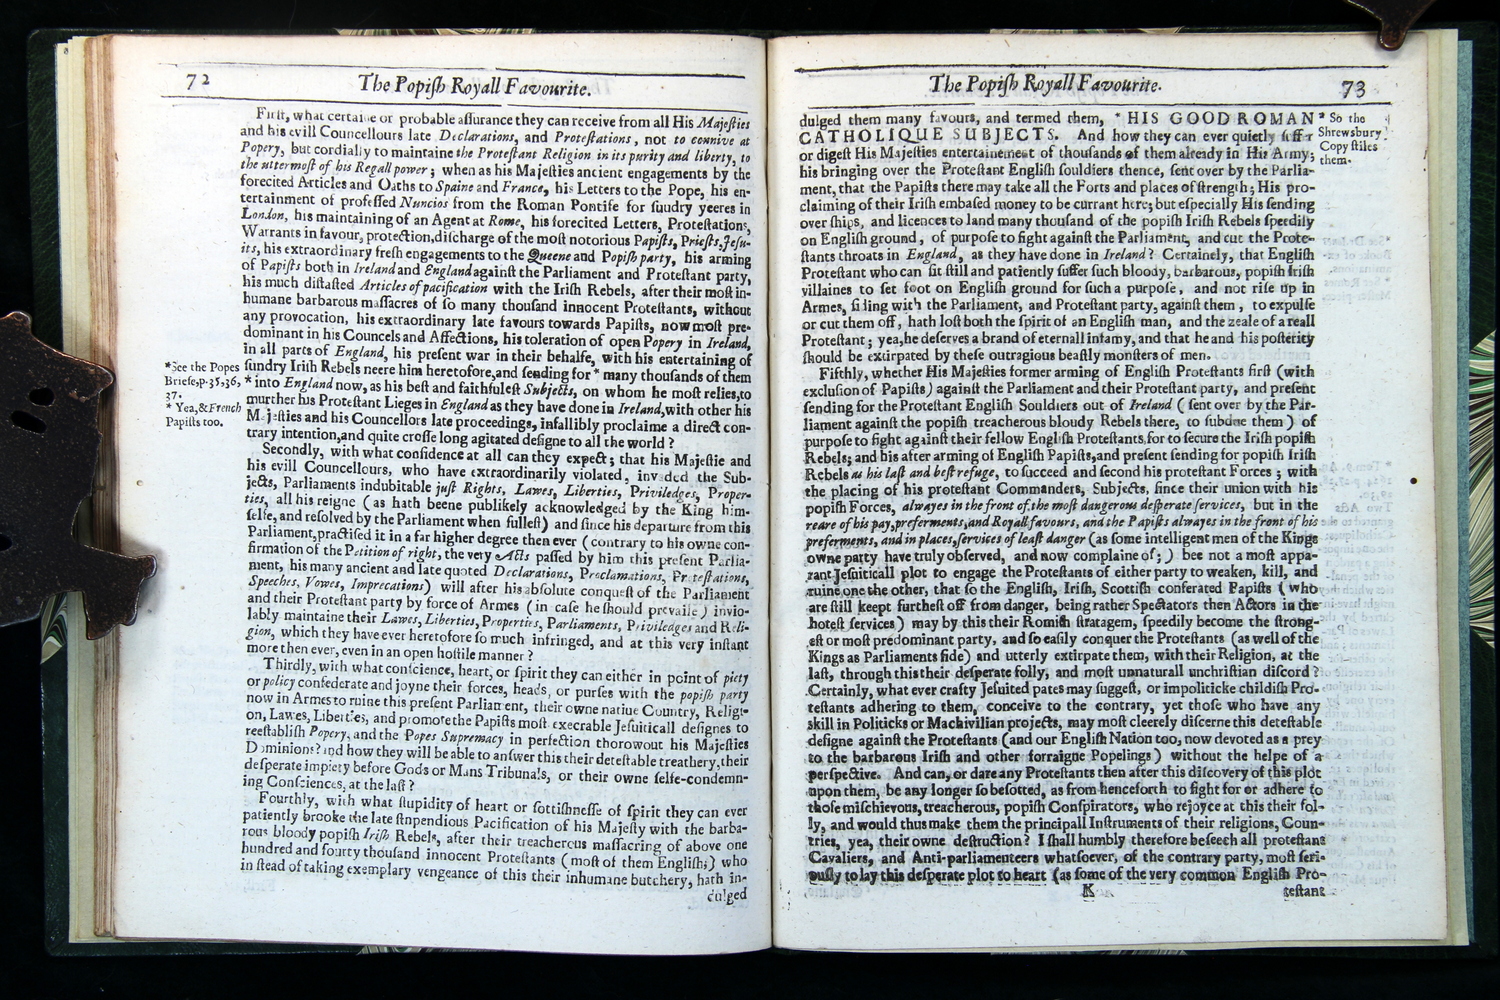 72
The Popiſh Royall Favourite.
Firſt, what certaine or probable aſſurance they can receive from all His Majeſties
and his evill Councellours late Declarations, and Proteſtations, not to connive at
Popery, but cordially to maintaine the Proteſtant Religion in its purity and liberty, to
the uttermoſt of his Regall power; when as his Majeſties ancient engagements by the
forecited Articles and Oaths to Spaine and France, his Letters to the Pope, his en-
tertainment of profeſſed Nuncios from the Roman Pontife for ſundry yeeres in
London, his maintaining of an Agent at Rome, his forecited Letters, Proteſtations,
Warrants in favour, protection, diſcharge of the moſt notorious Papiſts, Prieſts, Jeſu-
its, his extraordinary freſh engagements to the Queene and Popiſh party, his arming
of Papiſts both in Ireland and England againſt the Parliament and Proteſtant party,
his much diſtaſted Articles of pacification with the Iriſh Rebels, after their moſt in-
humane barbarous maſſacres of ſo many thouſand innocent Proteſtants, without
any provocation, his extraordinary late favours towards Papiſts, now moſt pre-
dominant in his Councels and Affections, his toleration of open Popery in Ireland,
in all parts of England, his preſent war in their behalfe, with his entertaining of
ſundry Iriſh Rebels neere him heretofore, and ſending for * many thouſands of them
* into England now, as his beſt and faithfuleſt Subjects, on whom he moſt relies, to
murther his Proteſtant Lieges in England as they have done in Ireland, with other his
Majeſties and his Councellors late proceedings, infallibly proclaime a direct con-
trary intention, and quite croſſe long agitated deſigne to all the world?
*See the Popes
Briefe, p. 35, 36,
37.
* Yea, & French
Papiſts too.
Secondly, with what confidence at all can they expect; that his Majeſtie and
his evill Councellours, who have extraordinarily violated, invaded the Sub-
jects, Parliaments indubitable juſt Rights, Lawes, Liberties, Priviledges, Proper-
ties, all his reigne (as hath beene publikely acknowledged by the King him-
ſelfe, and reſolved by the Parliament when fulleſt) and ſince his departure from this
Parliament, practiſed it in a far higher degree then ever (contrary to his owne con-
firmation of the Petition of right, the very Acts paſſed by him this preſent Parlia-
ment, his many ancient and late quoted Declarations, Proclamations, Proteſtations,
Speeches, Vowes, Imprecations) will after his abſolute conqueſt of the Parliament
and their Proteſtant party by force of Armes (in caſe he ſhould prevaile) invio-
lably maintaine their Lawes, Liberties, Properties, Parliaments, Priviledges and Reli-
gion, which they have ever heretofore ſo much infringed, and at this very inſtant
more then ever, even in an open hoſtile manner?
Thirdly, with what conſcience, heart, or ſpirit they can either in point of piety
or policy confederate and joyne their forces, heads, or purſes with the popiſh party
now in Armes to ruine this preſent Parliament, their owne native Country, Religi-
on, Lawes, Liberties, and promote the Papiſts moſt execrable Jeſuiticall deſignes to
reeſtabliſh Popery, and the Popes Supremacy in perfection thorowout his Majeſties
Dominions? and how they will be able to anſwer this their deteſtable treathery, their
deſperate impiety before Gods or Mans Tribunals, or their owne ſelfe-condemn-
ing Conſciences, at the laſt?
Fourthly, with what ſtupidity of heart or ſottiſhneſſe of ſpirit they can ever
patiently brooke the late ſtnpendious Pacification of his Majeſty with the barba-
rous bloody popiſh Iriſh Rebels, after their treacherous maſſacring of above one
hundred and fourty thouſand innocent Proteſtants (moſt of them Engliſh;) who
in ſtead of taking exemplary vengeance of this their inhumane butchery, hath in-
dulged
The Popiſh Royall Favourite.
73
dulged them many favours, and termed them, * HIS GOOD ROMAN
CATHOLIQUE SUBJECTS. And how they can ever quietly ſuffer
or digeſt His Majeſties entertainement of thouſands of them already in His Army;
his bringing over the Proteſtant Engliſh ſouldiers thence, ſent over by the Parlia-
ment, that the Papiſts there may take all the Forts and places of ſtrength; His pro-
claiming of their Iriſh embaſed money to be currant here; but eſpecially His ſending
over ſhips, and licences to land many thouſand of the popiſh Iriſh Rebels ſpeedily
on Engliſh ground, of purpoſe to fight againſt the Parliament, and cut the Prote-
ſtants throats in England, as they have done in Ireland? Certainely, that Engliſh
Proteſtant who can ſit ſtill and patiently ſuffer ſuch bloody, barbarous, popiſh Iriſh
villaines to ſet foot on Engliſh ground for ſuch a purpoſe, and not riſe up in
Armes, ſiding with the Parliament, and Proteſtant party, againſt them, to expulſe
or cut them off, hath loſt both the ſpirit of an Engliſh man, and the zeale of a reall
Proteſtant; yea, he deſerves a brand of eternall infamy, and that he and his poſterity
ſhould be extirpated by theſe outragious beaſtly monſters of men.
* So the
Shrewsbury
Copy ſtiles
them.
Fifthly, whether His Majeſties former arming of Engliſh Proteſtants firſt (with
excluſion of Papiſts) againſt the Parliament and their Proteſtant party, and preſent
ſending for the Proteſtant Engliſh Souldiers out of Ireland (ſent over by the Par-
liament againſt the popiſh treacherous bloody Rebels there, to ſubdue them) of
purpoſe to fight againſt their fellow Engliſh Proteſtants, for to ſecure the Iriſh popiſh
Rebels; and his after arming of Engliſh Papiſts, and preſent ſending for popiſh Iriſh
Rebels as his laſt and beſt refuge, to ſucceed and ſecond his proteſtant Forces; with
the placing of his proteſtant Commanders, Subjects, ſince their union with his
popiſh Forces, alwayes in the front of the moſt dangerous deſperate ſervices, but in the
reare of his pay, preferments, and Royall favours, and the Papiſts alwayes in the front of his
preferments, and in places, ſervices of leaſt danger (as ſome intelligent men of the Kings
owne party have truly obſerved, and now complaine of;) bee not a moſt appa-
rant Jeſuiticall plot to engage the Proteſtants of either party to weaken, kill, and
ruine one the other, that ſo the Engliſh, Iriſh, Scottiſh conferated Papiſts (who
are ſtill keept furtheſt off from danger, being rather Spectators then Actors in the
hoteſt ſervices) may by this their Romiſh ſtratagem, ſpeedily become the ſtrong-
eſt or moſt predominant party, and ſo eaſily conquer the Proteſtants (as well of the
Kings as Parliaments ſide) and utterly extirpate them, with their Religion, at the
laſt, through this their deſperate folly, and moſt unnaturall unchriſtian diſcord?
Certainly, what ever crafty Jeſuited pates may ſuggeſt, or impoliticke childiſh Pro-
teſtants adhering to them, conceive to the contrary, yet thoſe who have any
skill in Politicks or Machivilian projects, may moſt cleerely diſcerne this deteſtable
deſigne againſt the Proteſtants (and our Engliſh Nation too, now devoted as a prey
to the barbarous Iriſh and other forraigne Popelings) without the helpe of a
perſpective. And can, or dare any Proteſtants then after this diſcovery of this plot
upon them, be any longer ſo beſotted, as from henceforth to fight for or adhere to
thoſe miſchievous, treacherous, popiſh Conſpirators, who rejoyce at this their fol-
ly, and would thus make them the principall Inſtruments of their religions, Coun-
tries, yea, their owne deſtruction? I ſhall humbly therefore beſeech all proteſtant
Cavaliers, and Anti-parliamenteers whatſoever, of the contrary party, moſt ſeri-
ouſly to lay this deſperate plot to heart (as ſome of the very common Engliſh Pro-
K
teſtant